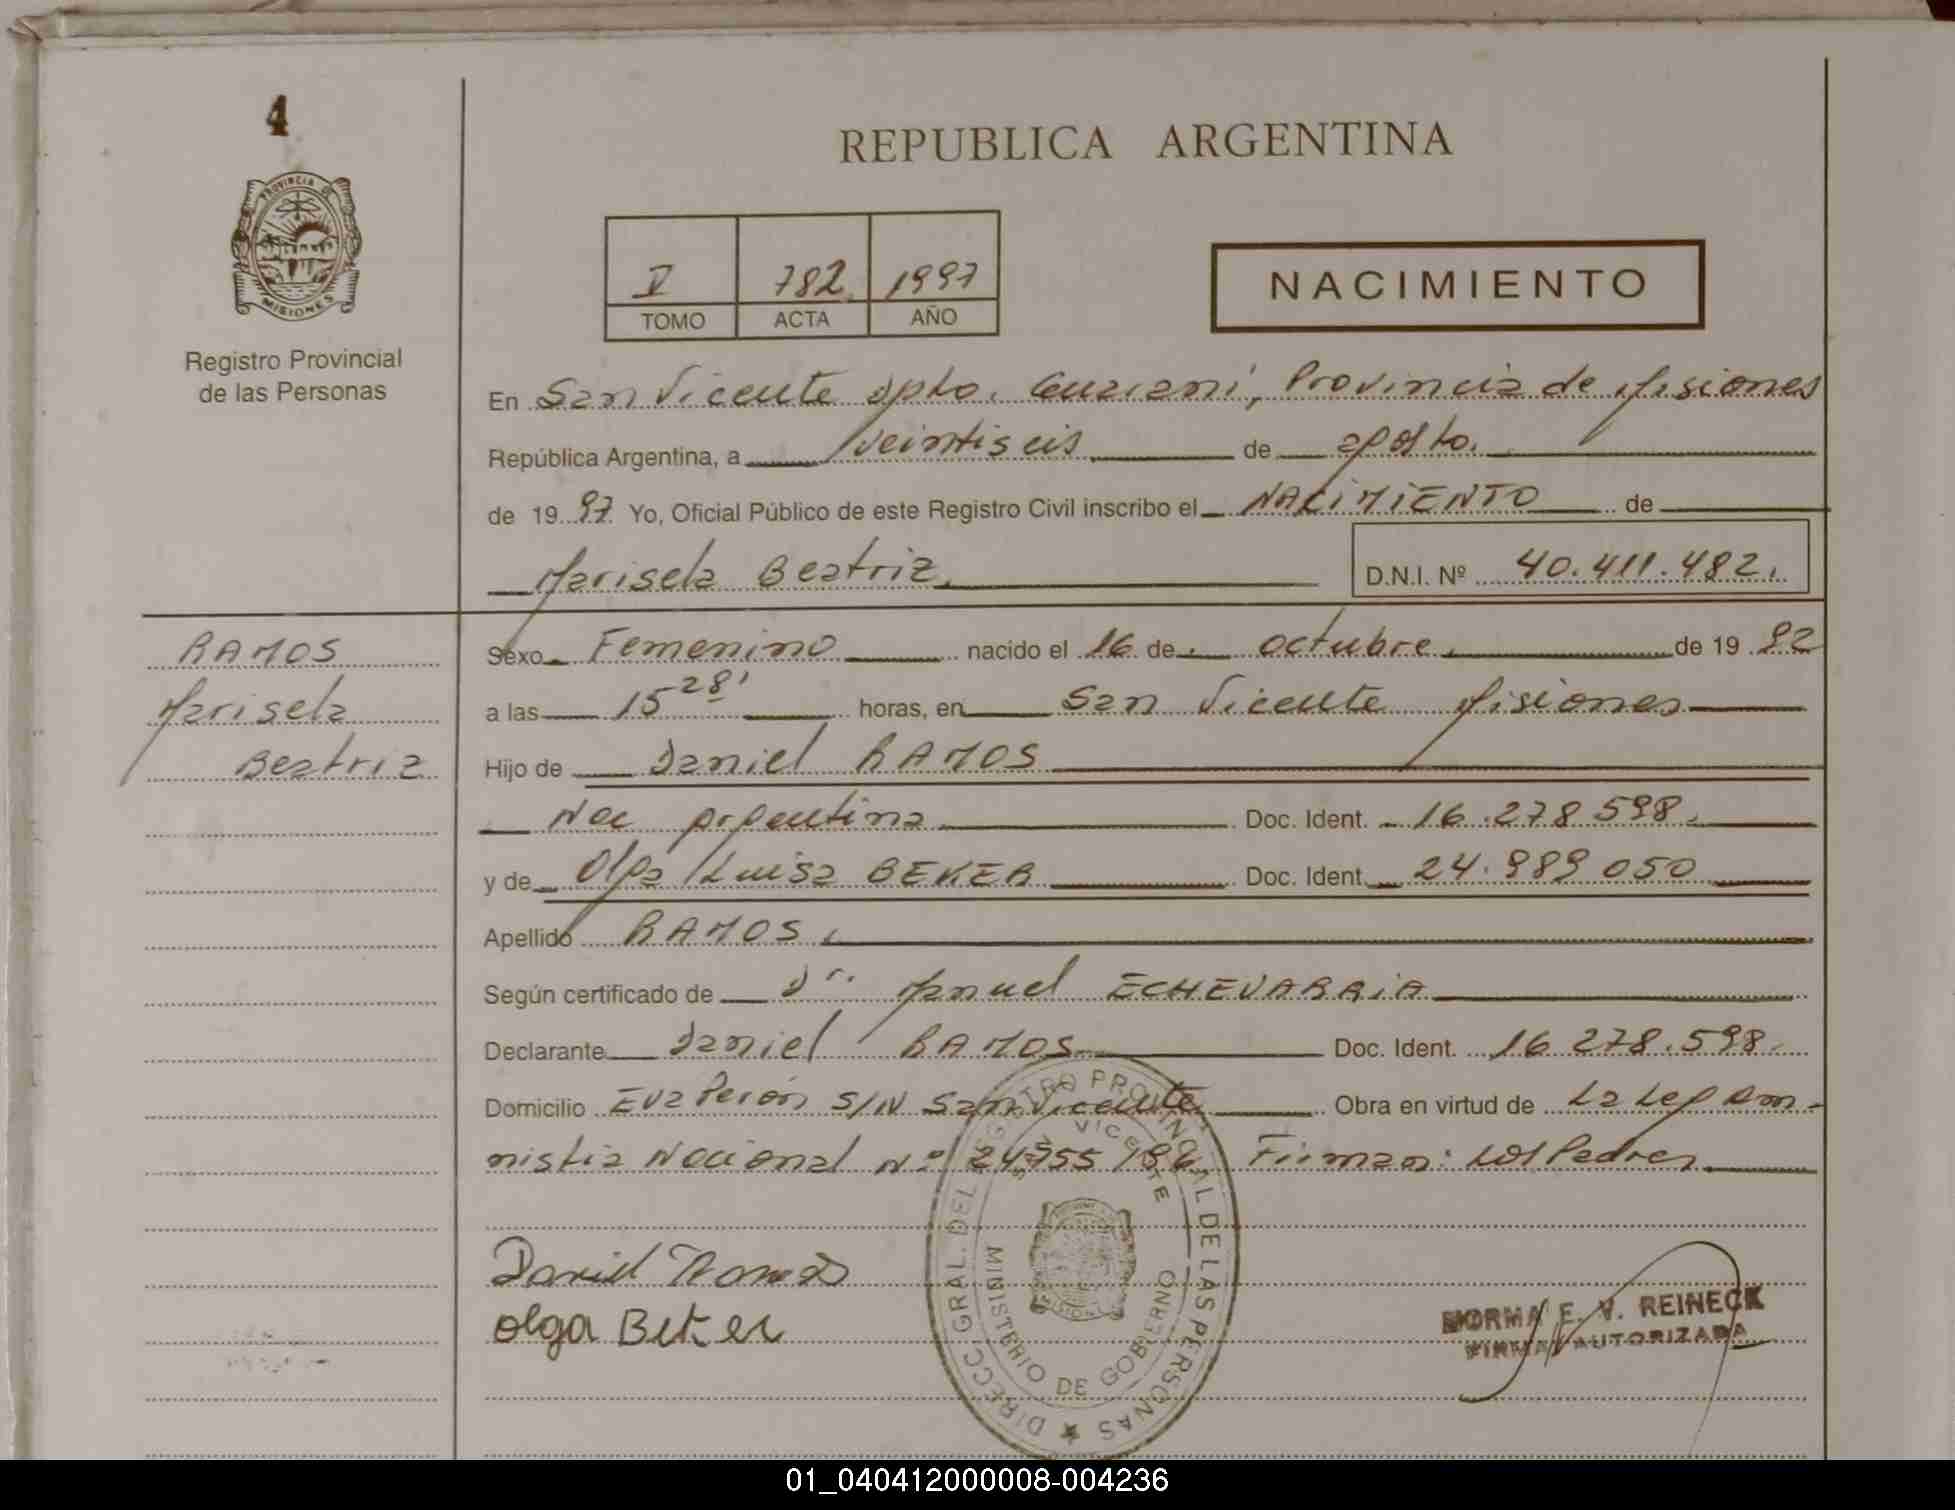 4
PROVINCIA DE
MISIONES
Registro Provincial
de las Personas
REPUBLICA ARGENTINA
V 782 1997
TOMO ACTA AÑO
NACIMIENTO
En San Vicente Dpto. Guaraní, Provincia de Misiones
República Argentina, a veintiseis de agosto.
de 1997. Yo, Oficial Público de este Registro Civil inscribo el NACIMIENTO de
Marisela Beatriz. D.N.I. Nº 40.411.482.
RAMOS
Marisela
Beatriz
Sexo Femenino nacido el 16 de octubre. de 1992
a las 15 28' horas, en San Vicente Misiones
Hijo de Daniel RAMOS
Nac argentina Doc. Ident. 16.278.598.
y de Olga Luisa BEKER Doc. Ident. 24.989.050
Apellido RAMOS.
Según certificado de Dr. Manuel ECHEVARRIA
Declarante Daniel RAMOS Doc. Ident. 16.278.598.
Domicilio Eva Perón S/N San Vicente Obra en virtud de La Ley Am-
nistia Nacional Nº 24755/96 Firman: los Padres
Daniel Ramos
Olga Beker
DIRECC. GRAL. DEL REGISTRO PROVINCIAL DE LAS PERSONAS
SAN VICENTE
MINISTERIO DE GOBIERNO
NORMA E. V. REINECK
FIRMA AUTORIZADA
01_040412000008-004236